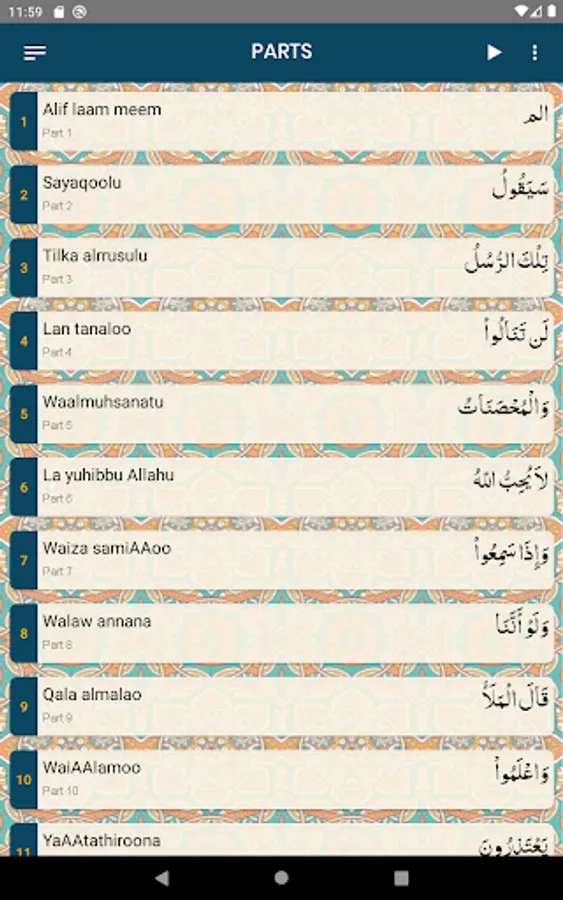 11:59
PARTS
1
Alif laam meem
الم
Part 1
2
Sayaqoolu
سَيَقُولُ
Part 2
3
Tilka alrrusulu
تِلْكَ الرُّسُلُ
Part 3
4
Lan tanaloo
لَن تَنَالُواْ
Part 4
5
Waalmuhsanatu
وَالْمُحْصَنَاتُ
Part 5
6
La yuhibbu Allahu
لاَ يُحِبُّ اللّهُ
Part 6
7
Waiza samiAAoo
وَإِذَا سَمِعُواْ
Part 7
8
Walaw annana
وَلَوْ أَنَّنَا
Part 8
9
Qala almalao
قَالَ الْمَلَأُ
Part 9
10
WaiAAlamoo
وَاعْلَمُواْ
Part 10
11
YaAAtathiroona
يَعْتَذِرُونَ